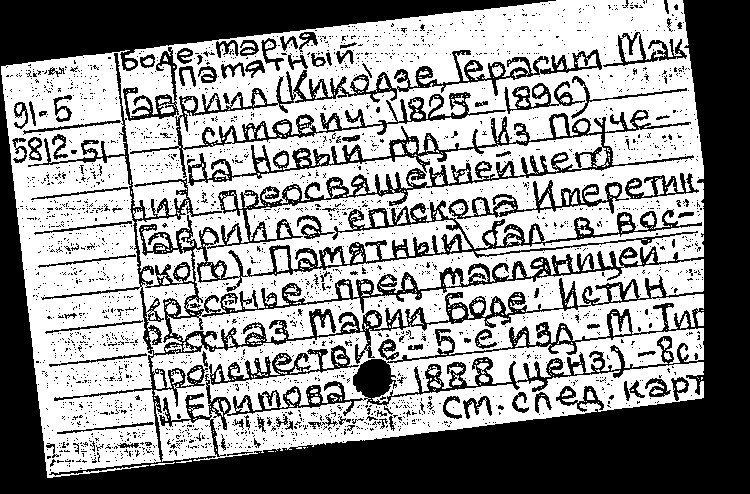 Боде, Мария
Памятный
91-5
5812-51
Гавриил (Кикодзе, Герасим Мак-
симович; 1825-1896)
На Новый год: (Из Поуче-
ний преосвященнейшего
Гавриила, епископа Имеретин-
ского). Памятный бал в вос-
кресенье пред масляницей:
Рассказ Марии Боде: Истин.
происшествие.- 5-е изд.- М.: Тип
И. Ефимова, 1888 (ценз.).- 8с.
См. след. карт